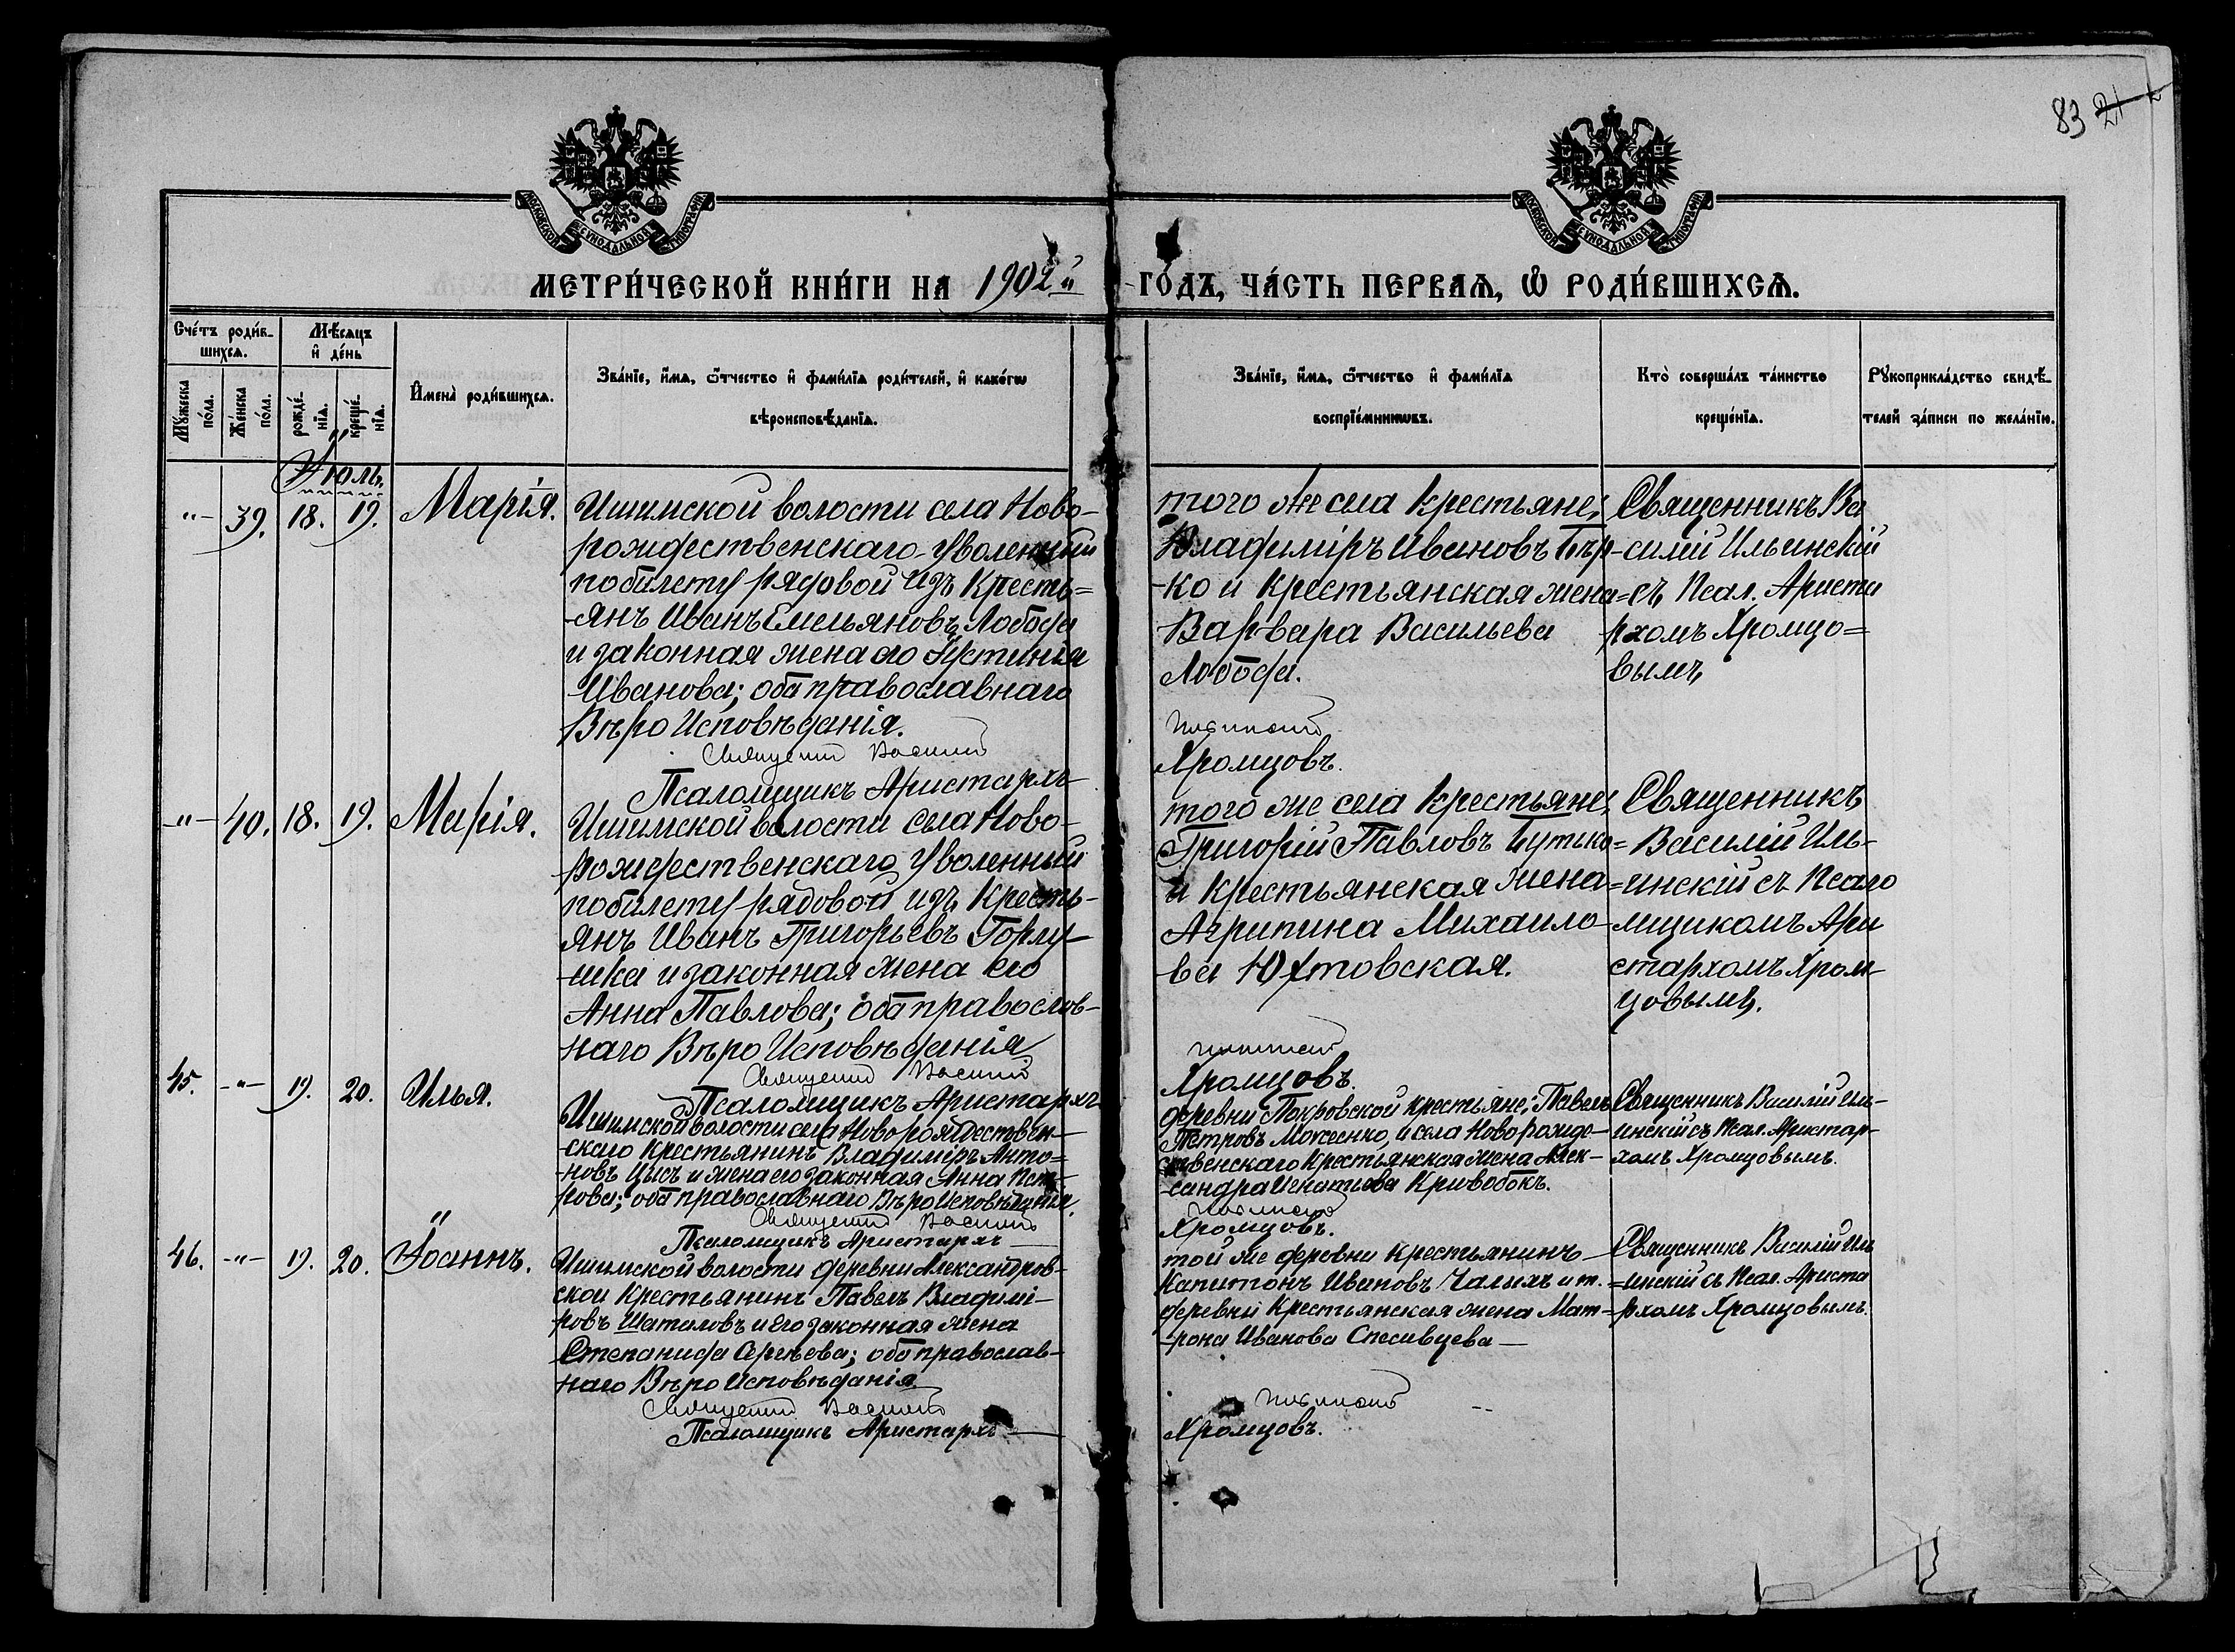 83 21
МОСКОВСКОЙ СѴНОДАЛЬНОЙ ТИПОГРАФІИ
МОСКОВСКОЙ СѴНОДАЛЬНОЙ ТИПОГРАФІИ
МЕТРИ́ЧЕСКОЙ КНИ́ГИ НА 1902й ГО́ДЪ, ЧА́СТЬ ПЕРВАѦ, Ѽ РОДИ́ВШИХСѦ.
Сче́тъ роди́в-
шихсѧ.
Мѣсѧцъ
и҆ де́нь
Мꙋ́жеска по́ла.
Же́нска по́ла.
рожде́-нїѧ.
креще́-нїѧ.
И҆мена̀ роди́вшихсѧ.
Зва́нїе, и҆́мѧ, ѻ҆́тчество и҆ фами́лїѧ роди́телей, и҆ како́гѡ
вѣроисповѣ́данїѧ.
Зва́нїе, и҆́мѧ, ѻ҆́тчество и҆ фами́лїѧ
воспрїе́мникѡвъ.
Кто̀ соверша́лъ та́инство
креще́нїѧ.
Рꙋкоприкла́дство свидѣ́-
телей за́писи по жела́нїю.
Іюль.
-"- 39. 18. 19. Марія.
Ишимской волости села Ново-
рождественскаго уволенный
по билету рядовой изъ Кресть=
-янъ Иванъ Емельяновъ Лобода
и законная жена его Іустинія
Иванова; оба православнаго
ВѣроИсповѣданія.
Священник Василий
Псаломщикъ Аристархъ
того же села Крестьяне;
Владиміръ Ивановъ Бур-
-ко и Крестьянская жена=
Варвара Васильева
Лобода.
Хромцовъ.
Священникъ Ва
силій Ильинскій
съ Псал. Ариста
рхомъ Хромцо=
вымъ
-"- 40. 18. 19. Марія.
Ишимской волости села Ново-
рождественскаго уволенный
по билету рядовой изъ Кресть-
янъ Иванъ Григорьевъ Горлу-
-шка и законная жена его
Анна Павлова; оба православ-
наго ВѣроИсповѣданія
Священник Василий
Псаломщикъ Аристархъ
того же села Крестьяне;
Григорій Павловъ Бутько=
и Крестьянская жена=
Агрипина Михаило-
ва Юхтовская.
Хромцовъ.
Священникъ
Василій Иль-
-инскій съ Псало
мщикомъ Ари
стархомъ Хром-
цовымъ.
45. -"- 19. 20. Илья.
Ишимской волости села Новорождествен-
-скаго Крестьянинъ Владиміръ Анто=
-новъ Цысь и жена его законная Анна Пет-
рова; оба православнаго ВѣроИсповѣданія.
Священник Василий
Псаломщикъ Аристархъ
деревни Покровской Крестьяне; Павелъ
Петровъ Мокеенко, и села Новорожде-
ственскаго Крестьянская жена Алек-
-сандра Игнатьева Кривобокъ.
Хромцовъ.
Священникъ Василій Иль-
инскій съ Псал. Аристар-
хомъ Хромцовымъ.
46. -"- 19. 20. Іоаннъ.
Ишимской волости деревни Александров-
ской Крестьянинъ Павелъ Владимі-
ровъ Шаталовъ и его законная жена
Степанида Сергѣева; оба православ-
наго ВѣроИсповѣданія
Священник Василий
Псаломщикъ Аристархъ
той же деревни Крестьянинъ
Капитонъ Ивановъ Чалыхъ и т.
деревни Крестьянская жена Мат=
-рона Иванова Спесивцева
Хромцовъ.
Священникъ Василій Иль
=инскій съ Псал. Ариста
рхомъ Хромцовымъ.